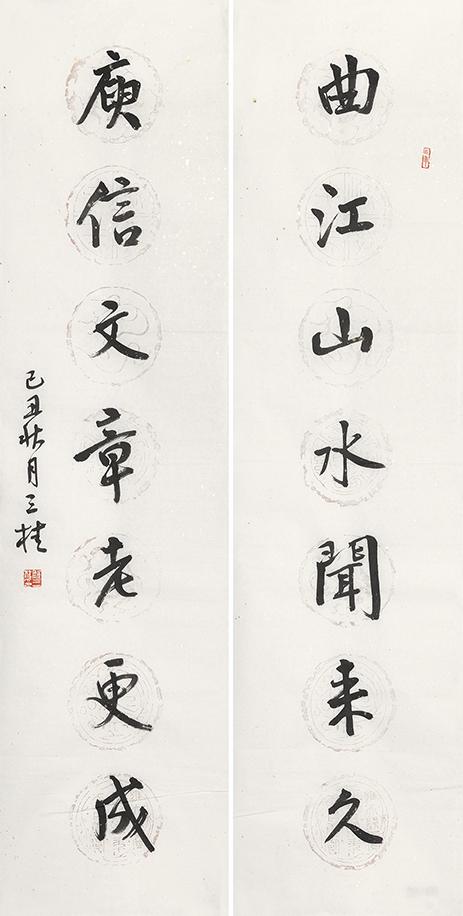 曲江山水聞来久
庾信文章老更成
己丑秋月三桂